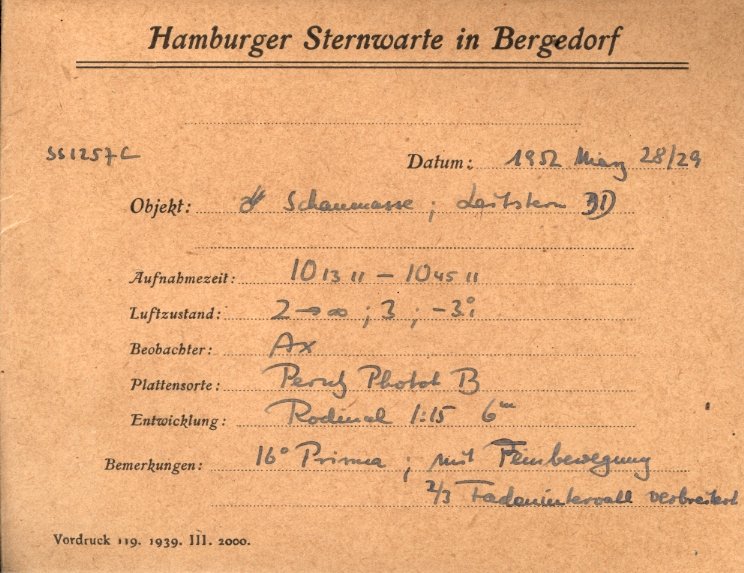 Hamburger Sternwarte in Bergedorf
SS1257C
Datum: 1952 März 28/29
Objekt: ☄ Schaumasse ; Leitstern BD
Aufnahmezeit: 10 13 11 – 10 45 11
Luftzustand: 2 → ∞ ; 3 ; -3°;
Beobachter: Ax
Plattensorte: Perutz Photot B
Entwicklung: Rodinal 1:15 6m
Bemerkungen: 16° Prisma ; mit Feinbewegung
2/3 Fadenintervall verbreitert
Vordruck 119. 1939. III. 2000.